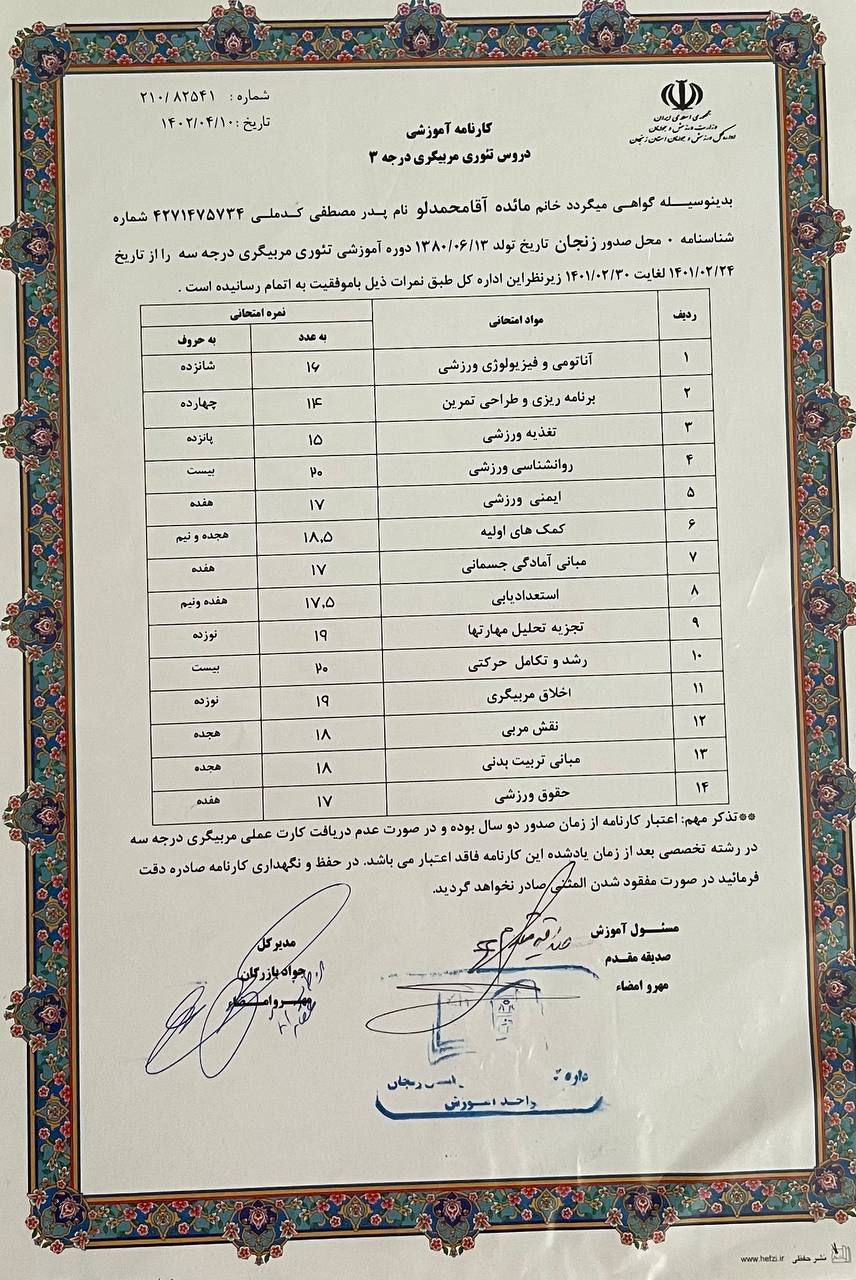 جمهوری اسلامی ایران
وزارت ورزش و جوانان
اداره کل ورزش و جوانان استان زنجان
شماره : ۲۱۰/۸۲۵۴۱
تاریخ : ۱۴۰۲/۰۴/۱۰
کارنامه آموزشی
دروس تئوری مربیگری درجه ۳
بدینوسیله گواهی میگردد خانم مائده آقامحمدلو نام پدر مصطفی کدملی ۴۲۷۱۴۷۵۷۳۴ شماره
شناسنامه ۰ محل صدور زنجان تاریخ تولد ۱۳۸۰/۰۶/۱۳ دوره آموزشی تئوری مربیگری درجه سه را از تاریخ
۱۴۰۱/۰۲/۲۴ لغایت ۱۴۰۱/۰۲/۳۰ زیرنظراین اداره کل طبق نمرات ذیل باموفقیت به اتمام رسانیده است .
ردیف مواد امتحانی نمره امتحانی
به عدد به حروف
۱ آناتومی و فیزیولوژی ورزشی ۱۶ شانزده
۲ برنامه ریزی و طراحی تمرین ۱۴ چهارده
۳ تغذیه ورزشی ۱۵ پانزده
۴ روانشناسی ورزشی ۲۰ بیست
۵ ایمنی ورزشی ۱۷ هفده
۶ کمک های اولیه ۱۸,۵ هجده و نیم
۷ مبانی آمادگی جسمانی ۱۷ هفده
۸ استعدادیابی ۱۷,۵ هفده ونیم
۹ تجزیه تحلیل مهارتها ۱۹ نوزده
۱۰ رشد و تکامل حرکتی ۲۰ بیست
۱۱ اخلاق مربیگری ۱۹ نوزده
۱۲ نقش مربی ۱۸ هجده
۱۳ مبانی تربیت بدنی ۱۸ هجده
۱۴ حقوق ورزشی ۱۷ هفده
**تذکر مهم: اعتبار کارنامه از زمان صدور دو سال بوده و در صورت عدم دریافت کارت عملی مربیگری درجه سه
در رشته تخصصی بعد از زمان یادشده این کارنامه فاقد اعتبار می باشد. در حفظ و نگهداری کارنامه صادره دقت
فرمائید در صورت مفقود شدن المثنی صادر نخواهد گردید.
مسئول آموزش
صدیقه مقدم
مهرو امضاء
مدیرکل
جواد بازرگان
مهرو امضاء
واحد آموزش
نشر حفظی www.hefzi.ir